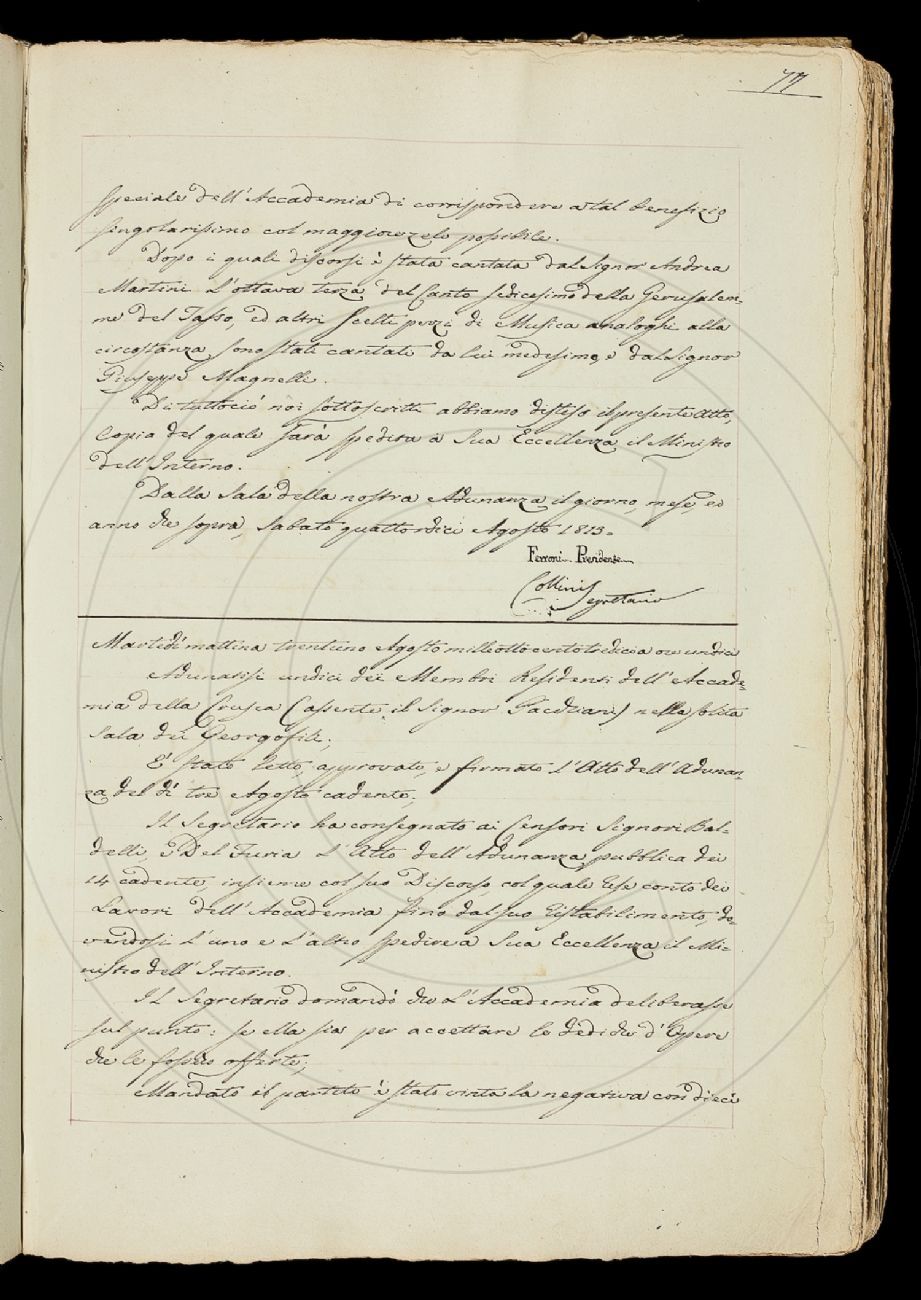 77
speciale dell'Accademia di corrispondere a tal benefizio
singolarissimo col maggiore zelo possibile.
Dopo i quali discorsi è stata cantata dal Signor Andrea
Martini l'ottava terza del Canto sedicesimo della Gerusalem-
me del Tasso, ed altri scelti pezzi di Musica analoghi alla
circostanza sono stati cantati da lui medesimo, e dal Signor
Giuseppe Magnelli.
Di tuttociò noi sottoscritti abbiamo disteso il presente Atto,
Copia del quale sarà spedita a Sua Eccellenza il Ministro
dell'Interno.
Dalla Sala della nostra Adunanza il giorno, mese, ed
anno che sopra, Sabato quattordici Agosto 1813.
Ferroni Presidente
Collini Segretario
Martedì mattina trentuno Agosto milleottocentotredici a ore undici
Adunatisi undici dei Membri Residenti dell'Accade-
mia della Crusca (assente il Signor) nella solita
Sala dei Georgofili;
È stato letto, approvato, e firmato l'Atto dell'Adunan-
za del dì tre Agosto cadente;
Il Segretario ha consegnato ai Censori Signori Bal-
delli, e Del Furia l'Atto dell'Adunanza pubblica dei
14 cadente, insieme col suo Discorso col quale rese conto dei
Lavori dell'Accademia fino dal suo ristabilimento, do-
vendosi l'uno e l'altro spedire a Sua Eccellenza il Mi-
nistro dell'Interno.
Il Segretario domandò che l'Accademia deliberasse
sul punto: se ella sia per accettare le dediche d'Opere
che le fossero offerte;
Mandato il partito è stata vinta la negativa con dieci